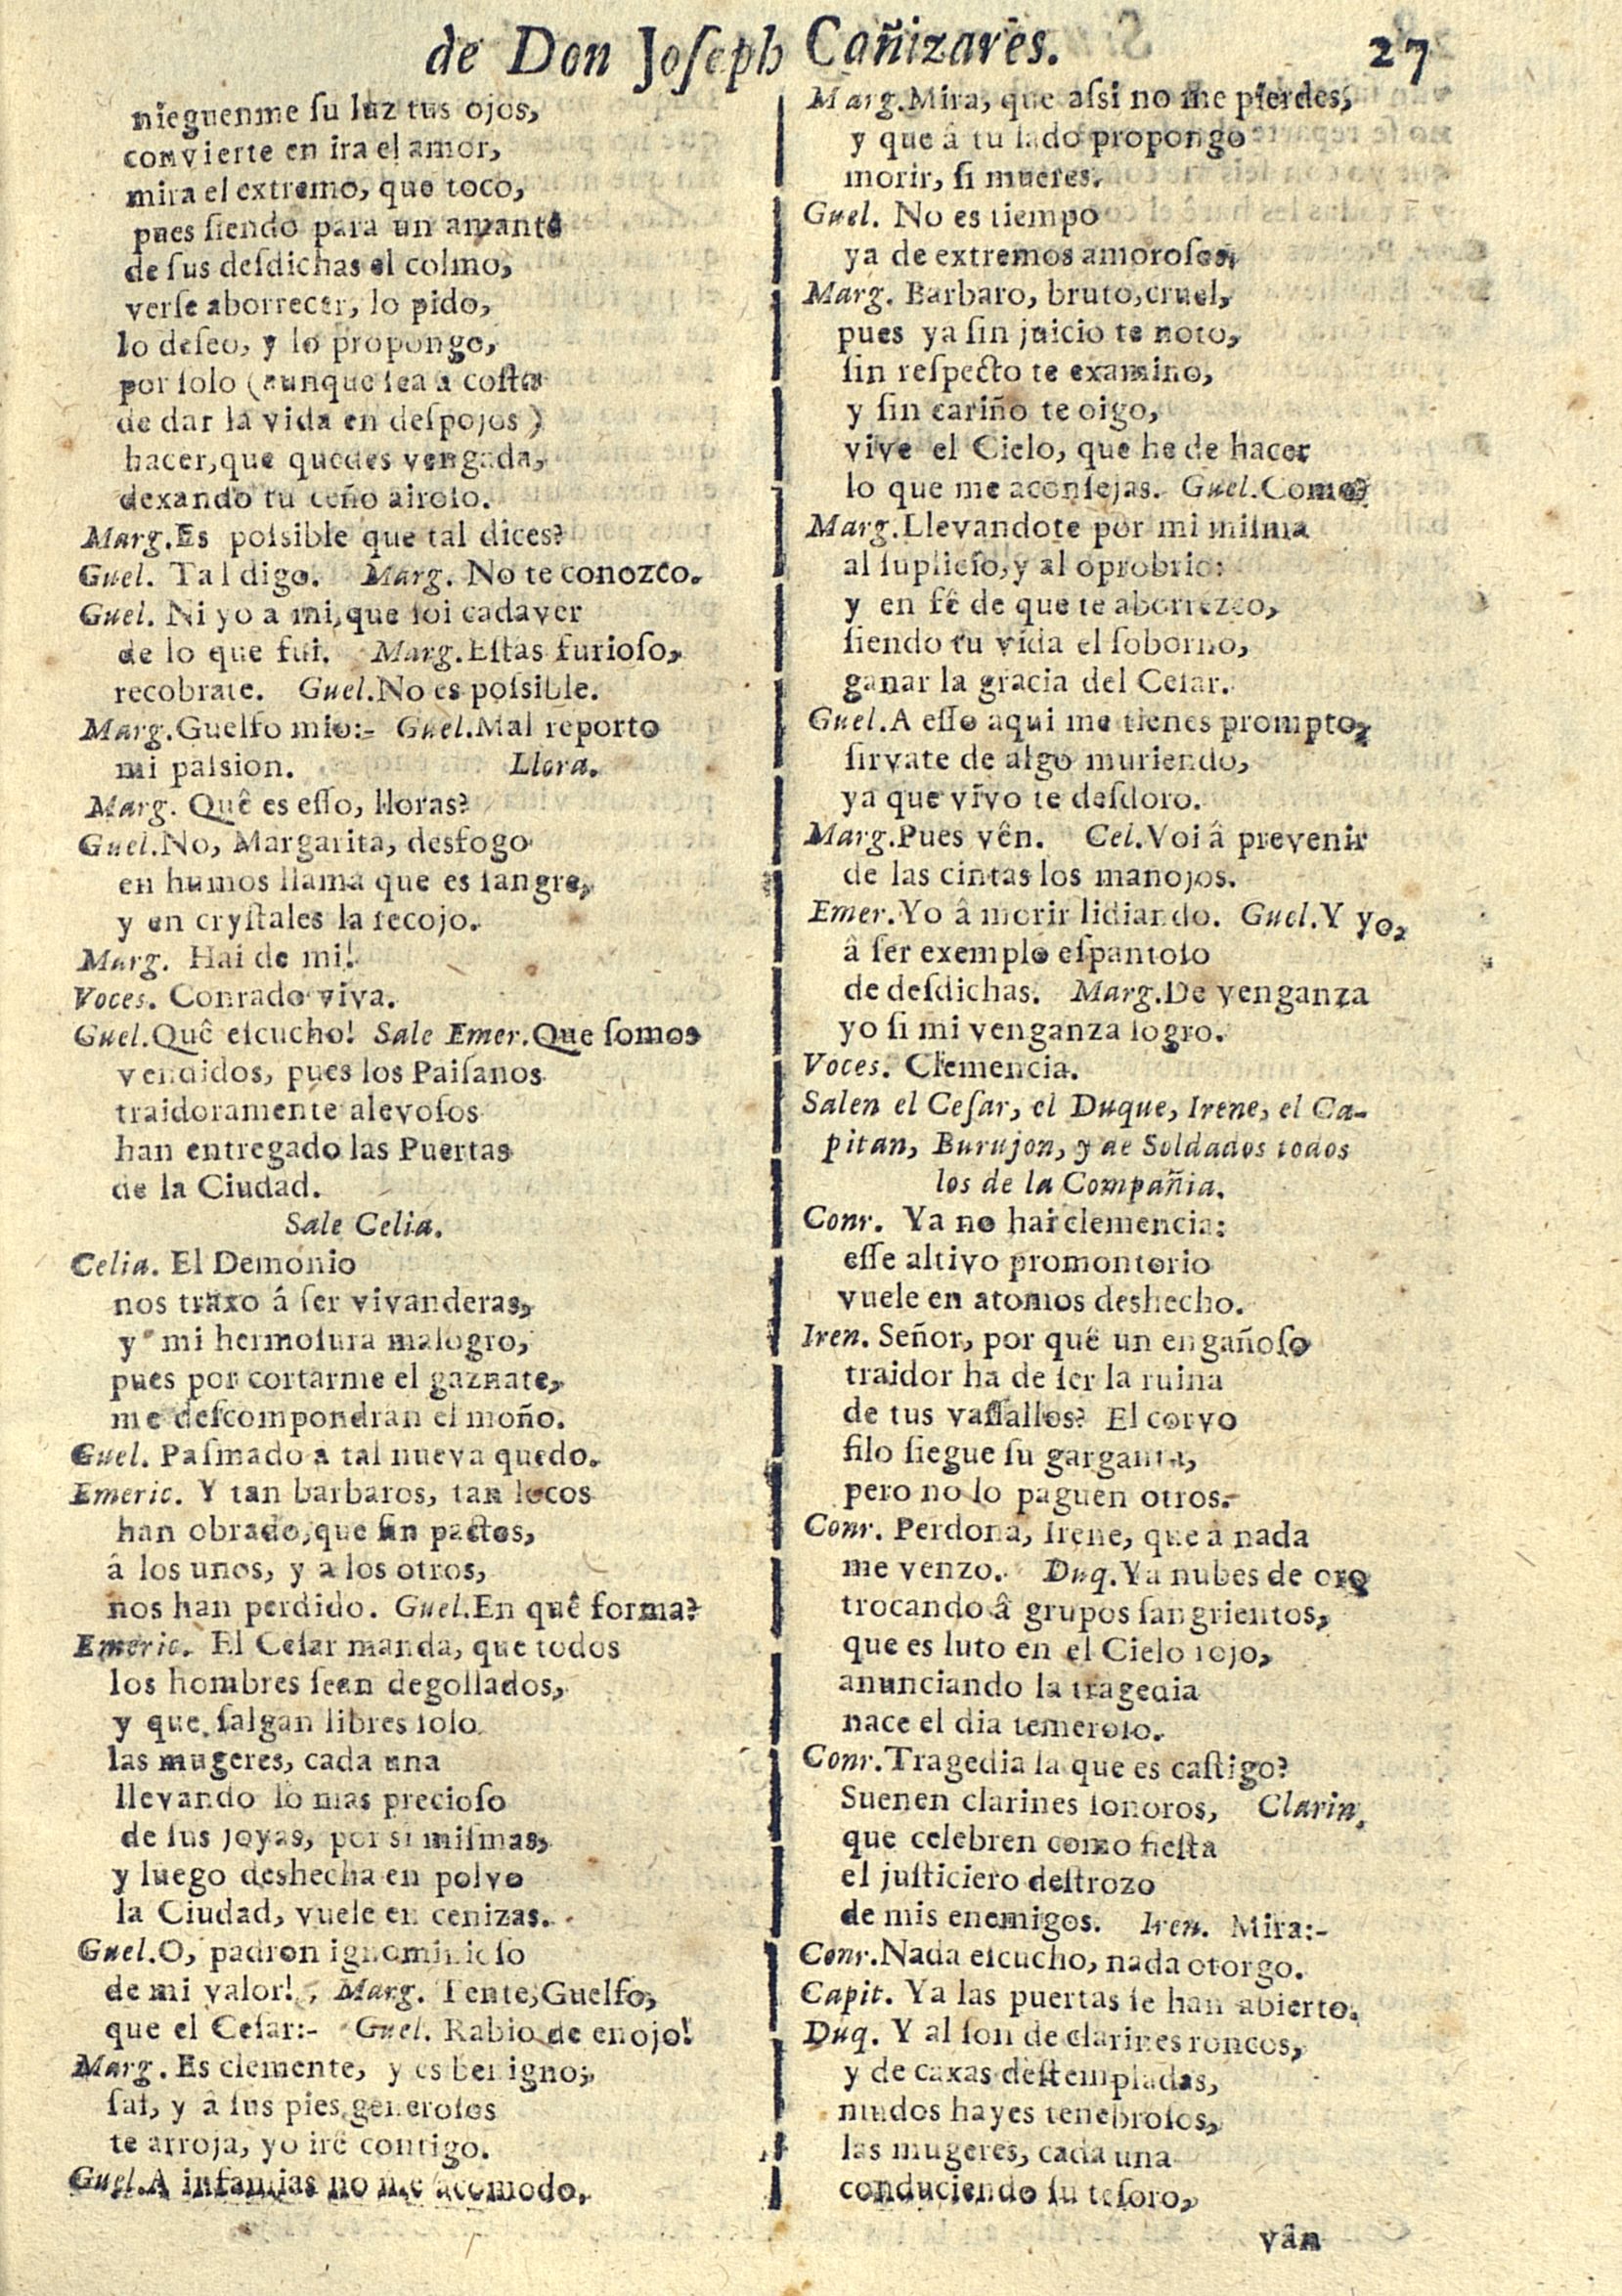 de Don Joſeph Cañizares.
27
nieguenme ſu luz tus ojos,
convierte en ira el amor,
mira el extremo, que toco,
pues ſiendo para un amante
de ſus deſdichas el colmo,
verſe aborrecer, lo pido,
lo deſeo, y lo propongo,
por ſolo (aunque ſea a coſta
de dar la vida en deſpojos)
hacer, que quedes vengada,
dexando tu ceño airoſo.
Marg. Es poſsible que tal dices?
Guel. Tal digo. Marg. No te conozco.
Guel. Ni yo a mi, que ſoi cadaver
de lo que fui. Marg. Eſtas furioſo,
recobrate. Guel. No es poſsible.
Marg. Guelfo mio:- Guel. Mal reporto
mi paſsion. Llora.
Marg. Quê es eſſo, lloras?
Guel. No, Margarita, desfogo
en humos llama que es ſangre,
y en cryſtales la recojo.
Marg. Hai de mi!
Voces. Conrado viva.
Guel. Quê eſcucho! Sale Emer. Que ſomos
vendidos, pues los Paiſanos
traidoramente alevoſos
han entregado las Puertas
de la Ciudad.
Sale Celia.
Celia. El Demonio
nos traxo á ſer vivanderas,
y mi hermoſura malogro,
pues por cortarme el gaznate,
me deſcompondran el moño.
Guel. Paſmado a tal nueva quedo.
Emeric. Y tan barbaros, tan locos
han obrado, que ſin pactos,
á los unos, y a los otros,
nos han perdido. Guel. En quê forma?
Emeric. El Ceſar manda, que todos
los hombres ſean degollados,
y que ſalgan libres ſolo
las mugeres, cada una
llevando lo mas precioſo
de ſus joyas, por sî miſmas,
y luego deshecha en polvo
la Ciudad, vuele en cenizas.
Guel. O, padron ignominioſo
de mi valor! Marg. Tente, Guelfo,
que el Ceſar:- Guel. Rabio de enojo!
Marg. Es clemente, y es benigno;
ſal, y â ſus pies generoſos
te arroja, yo irê contigo.
Guel. A infamias no me acomodo.
Marg. Mira, que aſsi no me pierdes,
y que â tu lado propongo
morir, ſi mueres.
Guel. No es tiempo
ya de extremos amoroſos,
Marg. Barbaro, bruto, cruel,
pues ya ſin juicio te noto,
ſin reſpecto te examino,
y ſin cariño te oigo,
vive el Cielo, que he de hacer
lo que me aconſejas. Guel. Como?
Marg. Llevandote por mi miſma
al ſuplicio, y al oprobrio:
y en fê de que te aborrezco,
ſiendo tu vida el ſoborno,
ganar la gracia del Ceſar.
Guel. A eſſo aqui me tienes prompto,
ſirvate de algo muriendo,
ya que vivo te deſdoro.
Marg. Pues vên. Cel. Voi â prevenir
de las cintas los manojos.
Emer. Yo â morir lidiando. Guel. Y yo,
â ſer exemplo eſpantoſo
de deſdichas. Marg. De venganza
yo ſi mi venganza logro.
Voces. Clemencia.
Salen el Ceſar, el Duque, Irene, el Ca-
pitan, Burujon, y de Soldados todos
los de la Compañia.
Conr. Ya no hai clemencia:
eſſe altivo promontorio
vuele en atomos deshecho.
Iren. Señor, por quê un engañoſo
traidor ha de ſer la ruina
de tus vaſſallos? El corvo
filo ſiegue ſu garganta,
pero no lo paguen otros.
Conr. Perdona, Irene, que a nada
me venzo. Duq. Ya nubes de oro
trocando â grupos ſangrientos,
que es luto en el Cielo rojo,
anunciando la tragedia
nace el dia temeroſo.
Conr. Tragedia la que es caſtigo?
Suenen clarines ſonoros, Clarin.
que celebren como fieſta
el juſticiero deſtrozo
de mis enemigos. Iren. Mira:-
Conr. Nada eſcucho, nada otorgo.
Capit. Ya las puertas ſe han abierto.
Duq. Y al ſon de clarines roncos,
y de caxas deſtempladas,
mudos hayes tenebroſos,
las mugeres, cada una
conduciendo ſu teſoro,
vân